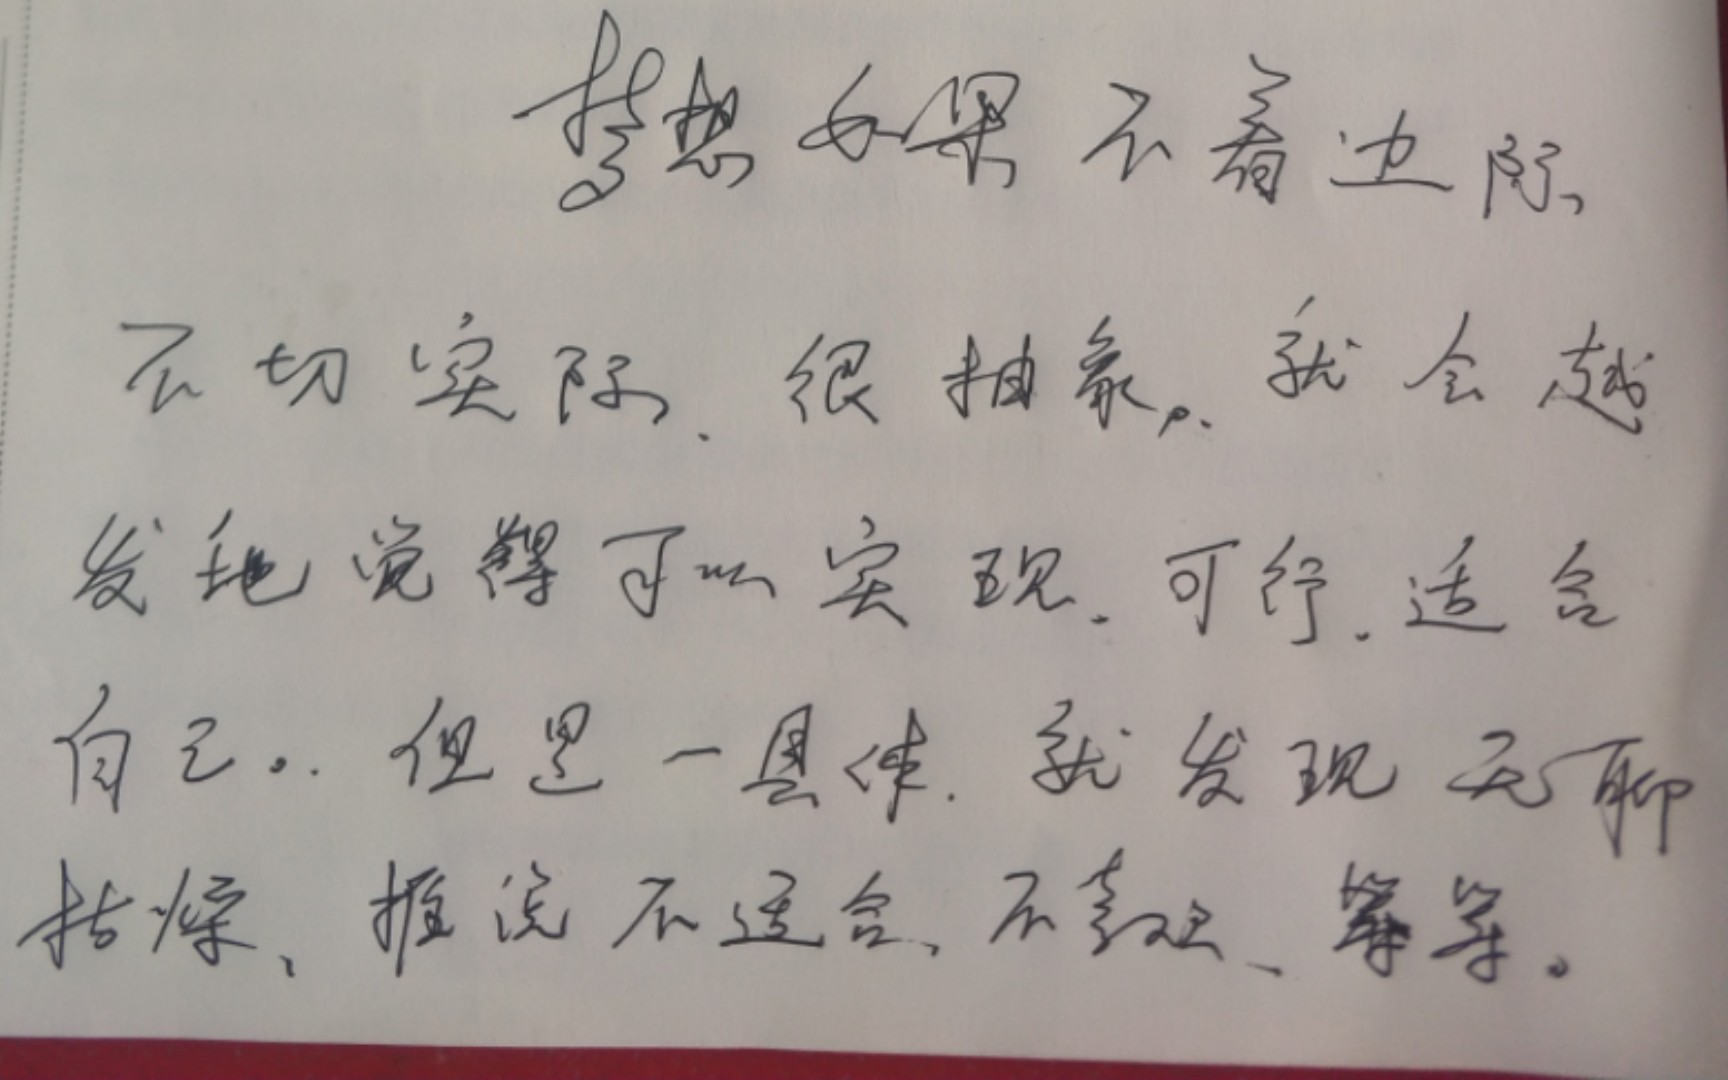 梦想如果不着边际、
不切实际、很抽象，就会越
发地觉得可以实现、可行、适合
自己。但是一具体，就发现无聊
枯燥、推说不适合、不喜欢、等等。